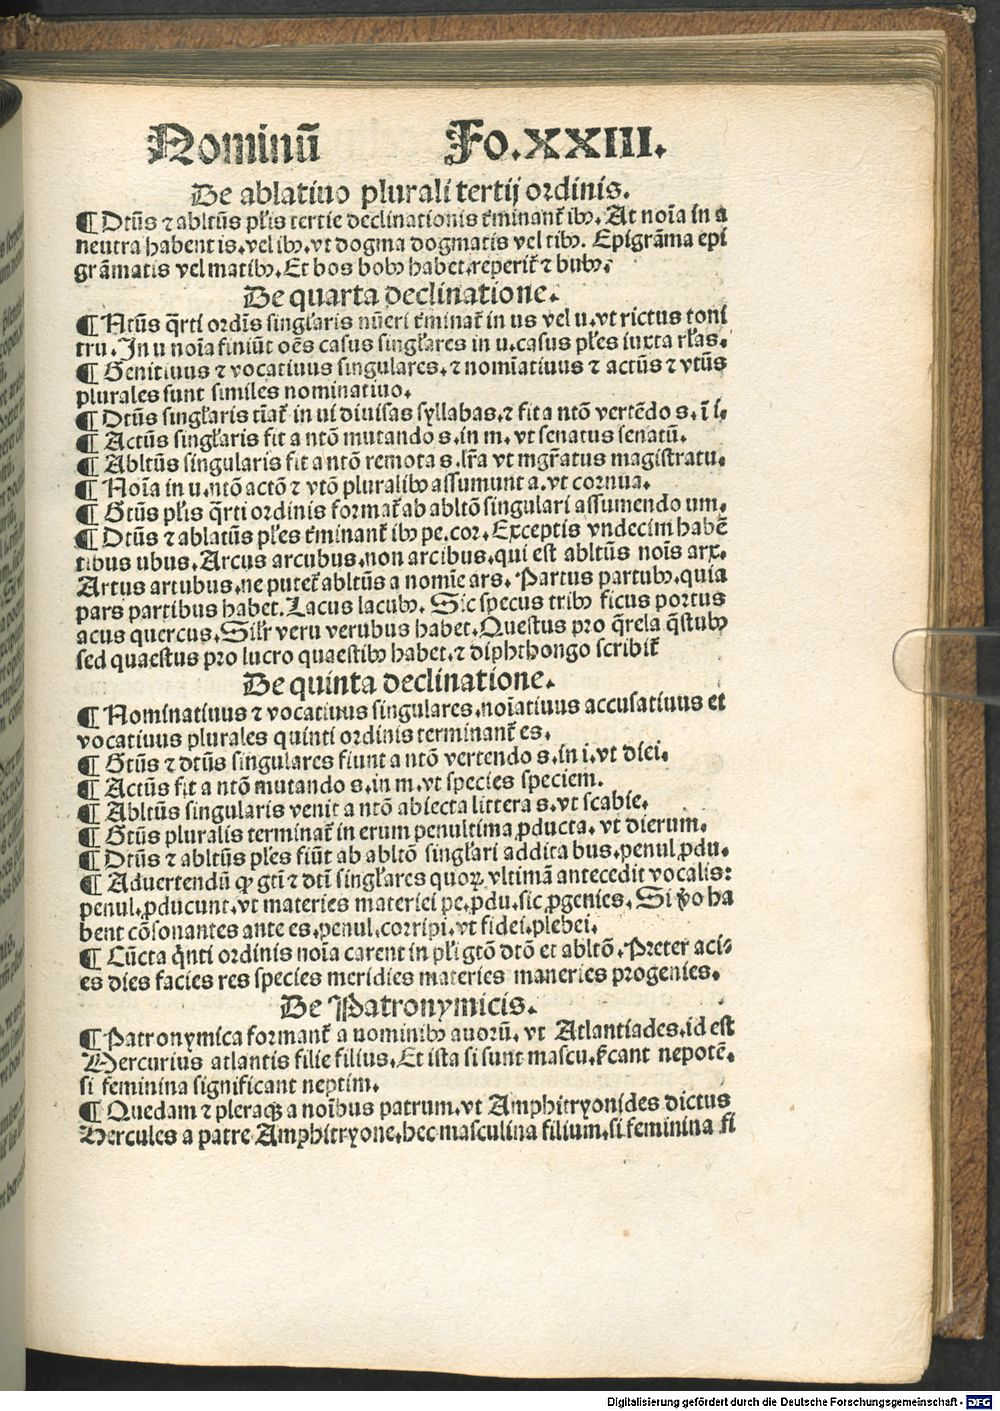 Nominū Fo.XXIII.
De ablatiuo plurali tertij ordinis.
¶ Dtūs ⁊ abltūs pl̄is tertie declinationis t̄minant̄ ibꝫ. At noīa in a
neutra habent is. vel ibꝫ. vt dogma dogmatis vel tibꝫ. Epigrāma epi
grāmatis vel matibꝫ. Et bos bobꝫ habet. reperit̄ ⁊ bubꝫ.
De quarta declinatione.
¶ Ntūs q̄rti ordīs singl̄aris nūeri t̄minat̄ in us vel u. vt rictus toni
tru. In u noīa finiūt oēs casus singl̄ares in u. casus pl̄es iuxta rl̄as.
¶ Genitiuus ⁊ vocatiuus singulares. ⁊ nomīatiuus ⁊ actūs ⁊ vtūs
plurales sunt similes nominatiuo.
¶ Dtūs singl̄aris tīat̄ in ui diuisas syllabas. ⁊ fit a ntō vertēdo s. ī i.
¶ Actūs singl̄aris fit a ntō mutando s. in m. vt senatus senatū.
¶ Abltūs singularis fit a ntō remota s. lr̄a vt mgr̄atus magistratu.
¶ Noīa in u. ntō actō ⁊ vtō pluralibꝫ assumunt a. vt cornua.
¶ Gtūs pl̄is q̄rti ordinis format̄ ab abltō singulari assumendo um.
¶ Dtūs ⁊ ablatūs pl̄es t̄minant̄ ibꝫ pe. cor. Exceptis vndecim habē
tibus ubus. Arcus arcubus. non arcibus. qui est abltūs noīs arx.
Artus artubus. ne putet̄ abltūs a nomīe ars. Partus partubꝫ. quia
pars partibus habet. Lacus lacubꝫ. Sic specus tribꝫ ficus portus
acus quercus. Silr̄ veru verubus habet. Questus pro q̄rela q̄stubꝫ
sed quaestus pro lucro quaestibꝫ habet. ⁊ diphthongo scribit̄
De quinta declinatione.
¶ Nominatiuus ⁊ vocatiuus singulares. noīatiuus accusatiuus et
vocatiuus plurales quinti ordinis terminant̄ es.
¶ Gtūs ⁊ dtūs singulares fiunt a ntō vertendo s. in i. vt diei.
¶ Actūs fit a ntō mutando s. in m. vt species speciem.
¶ Abltūs singularis venit a ntō abiecta littera s. vt scabie.
¶ Gtūs pluralis terminat̄ in erum penultima ꝓducta. vt dierum.
¶ Dtūs ⁊ abltūs pl̄es fiūt ab abltō singl̄ari addita bus. penul ꝓdu.
¶ Aduertendū ꝙ gtī ⁊ dtī singl̄ares quoꝝ vltimā antecedit vocalis:
penul. ꝓducunt. vt materies materiei pe. ꝓdu. sic ꝓgenies. Si ṽo ha
bent cōsonantes ante es. penul. corripi. vt fidei. plebei.
¶ Cūcta q̇nti ordinis noīa carent in pl̄i gtō dtō et abltō. Preter aci⸗
es dies facies res species meridies materies maneries progenies.
De Patronymicis.
¶ Patronymica formant̄ a nominibꝫ auorū. vt Atlantiades. id est
Mercurius atlantis filie filius. Et ista si sunt mascu. s̄cant nepotē.
si feminina significant neptim.
¶ Quedam ⁊ pleraqꝫ a noībus patrum. vt Amphitryonides dictus
Hercules a patre Amphitryone. hec masculina filium. si feminina fi
Digitalisierung gefördert durch die Deutsche Forschungsgemeinschaft - DFG